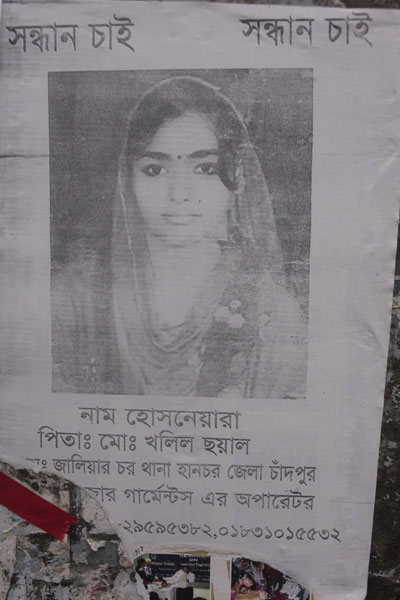 সন্ধান চাই সন্ধান চাই
নাম হোসনেয়ারা
পিতাঃ মোঃ খলিল ছয়াল
জালিয়ার চর থানা হানচর জেলা চাঁদপুর
গার্মেন্টস এর অপারেটর
২৯৫৯৫৩৮২,০১৮৩১০১৫৫৩২